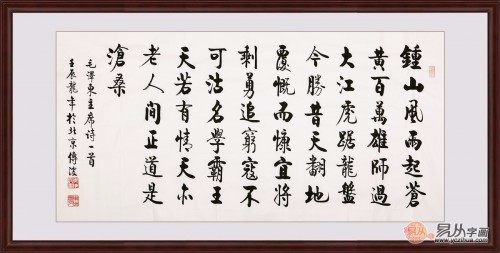 鍾山風雨起蒼
黃百萬雄師過
大江虎踞龍盤
今勝昔天翻地
覆慨而慷宜將
剩勇追窮寇不
可沽名學霸王
天若有情天亦
老人間正道是
滄桑
毛澤東主席詩一首
壬辰龍年於北京傅
易从字画
www.yczihua.com